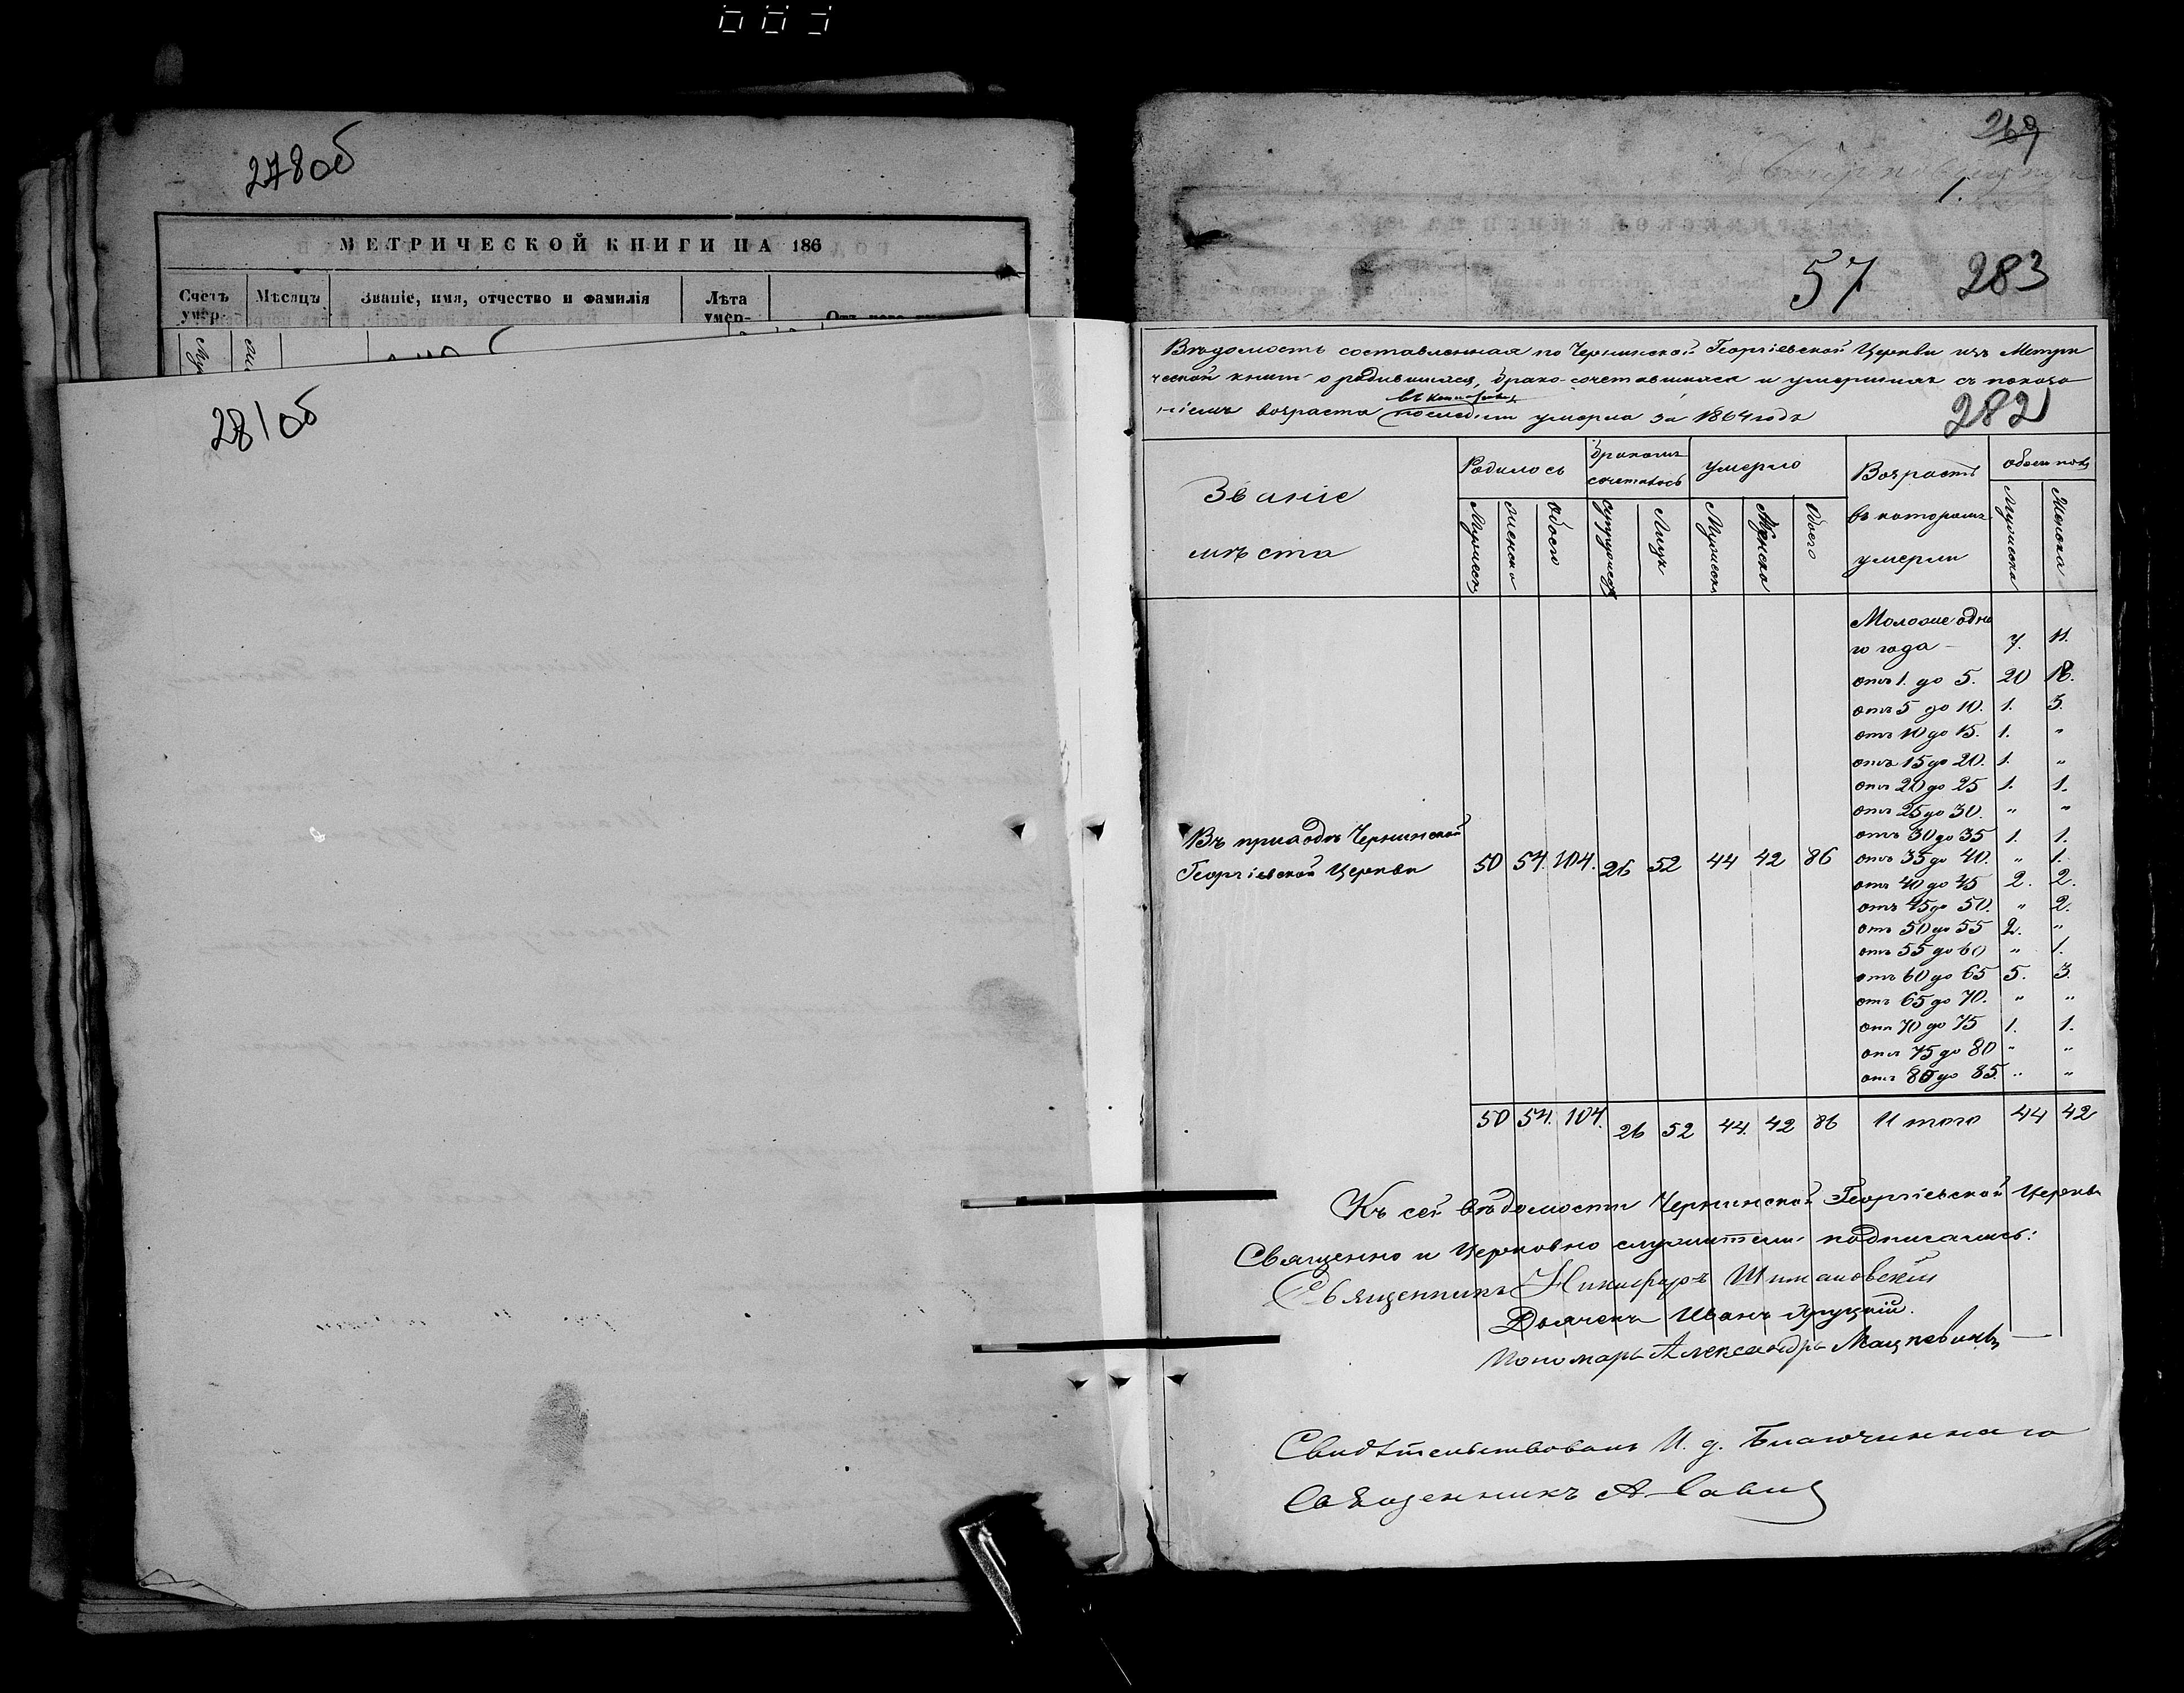 278об
МЕТРИЧЕСКОЙ КНИГИ НА 186
Счетъ умер. Мѣсяцъ Званіе, имя, отчество и фамилія Лѣта умер- Отъ чего
281об
269
1.
57 283
Вѣдомость составленная по Чернинской Георгіевской Церкви изъ Метри
ческой книги о родившихся, брако-сочетавшихся и умершихъ съ показа
ніемъ возраста въ которомъ последніи умерли за 1864 годъ
282
Званіе мѣста
Родилось
Бракомъ сочеталось
Умерло
Возрастъ въ которомъ умерли
обоего пола
Мужеска Женска Обоего Супружествъ Лицъ Мужеска Женска Обоего Мужеска Женска
Молодше одно
го года - 7. 11.
отъ 1. до 5. 20 18.
отъ 5 до 10. 1. 3.
отъ 10 до 15. 1. "
отъ 15 до 20. 1. "
отъ 20 до 25 1. 1.
отъ 25 до 30. " "
отъ 30 до 35 1. 1.
Въ приходѣ Чернинской
Георгіевской Церкви 50 54. 104. 26 52 44 42 86 отъ 35 до 40. " 1.
отъ 40 до 45 2. 2.
отъ 45 до 50. " 2.
отъ 50 до 55 2. "
отъ 55 до 60 " 1.
отъ 60 до 65 5. 3.
отъ 65 до 70. " "
отъ 70 до 75 1. 1.
отъ 75 до 80 " "
отъ 80 до 85. " "
50 54. 104. 26 52 44. 42 86 Итого 44 42
Къ сей вѣдомости Чернинской Георгіевской Церкви
Священно и Церковно служители подписались:
Священникъ Никифоръ Шимановскій
Дьячекъ Иванъ Яруцкій.
Пономарь Александръ Мацкевичъ
Свидѣтельствовалъ И. д. Благочиннаго
Священникъ А Савич